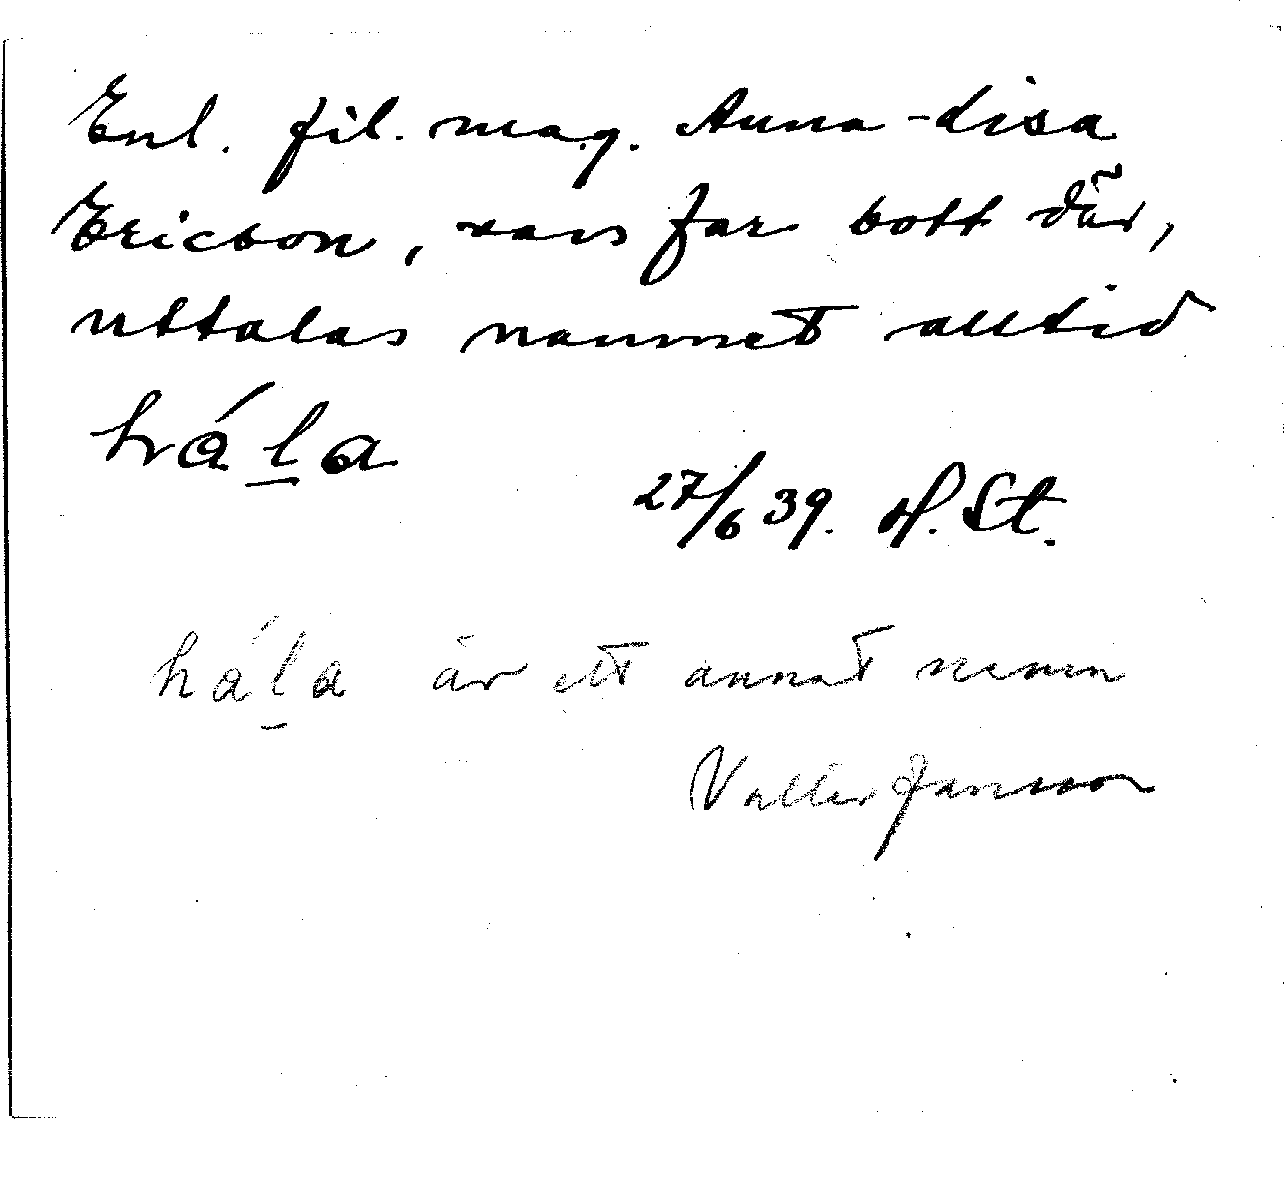 Enl. fil. mag. Anna-disa
Ericson, vars far bott där,
uttalas namnet alltid
hvála
27/6 39. H. St.
hála är ett annat namn
Valter Jansson